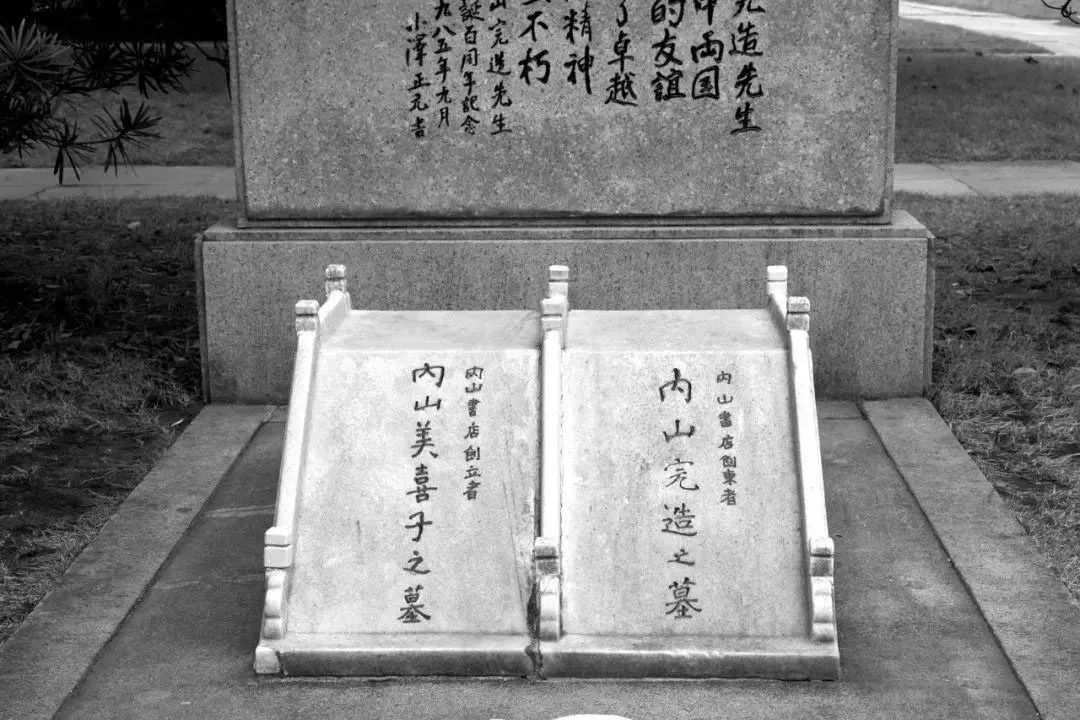 造先生
両国
的友誼
了卓越
精神
不朽
山完造先生
誕百周年記念
九八五年九月
小澤正元
内山書店創東者
内山完造之墓
内山書店創立者
内山美喜子之墓